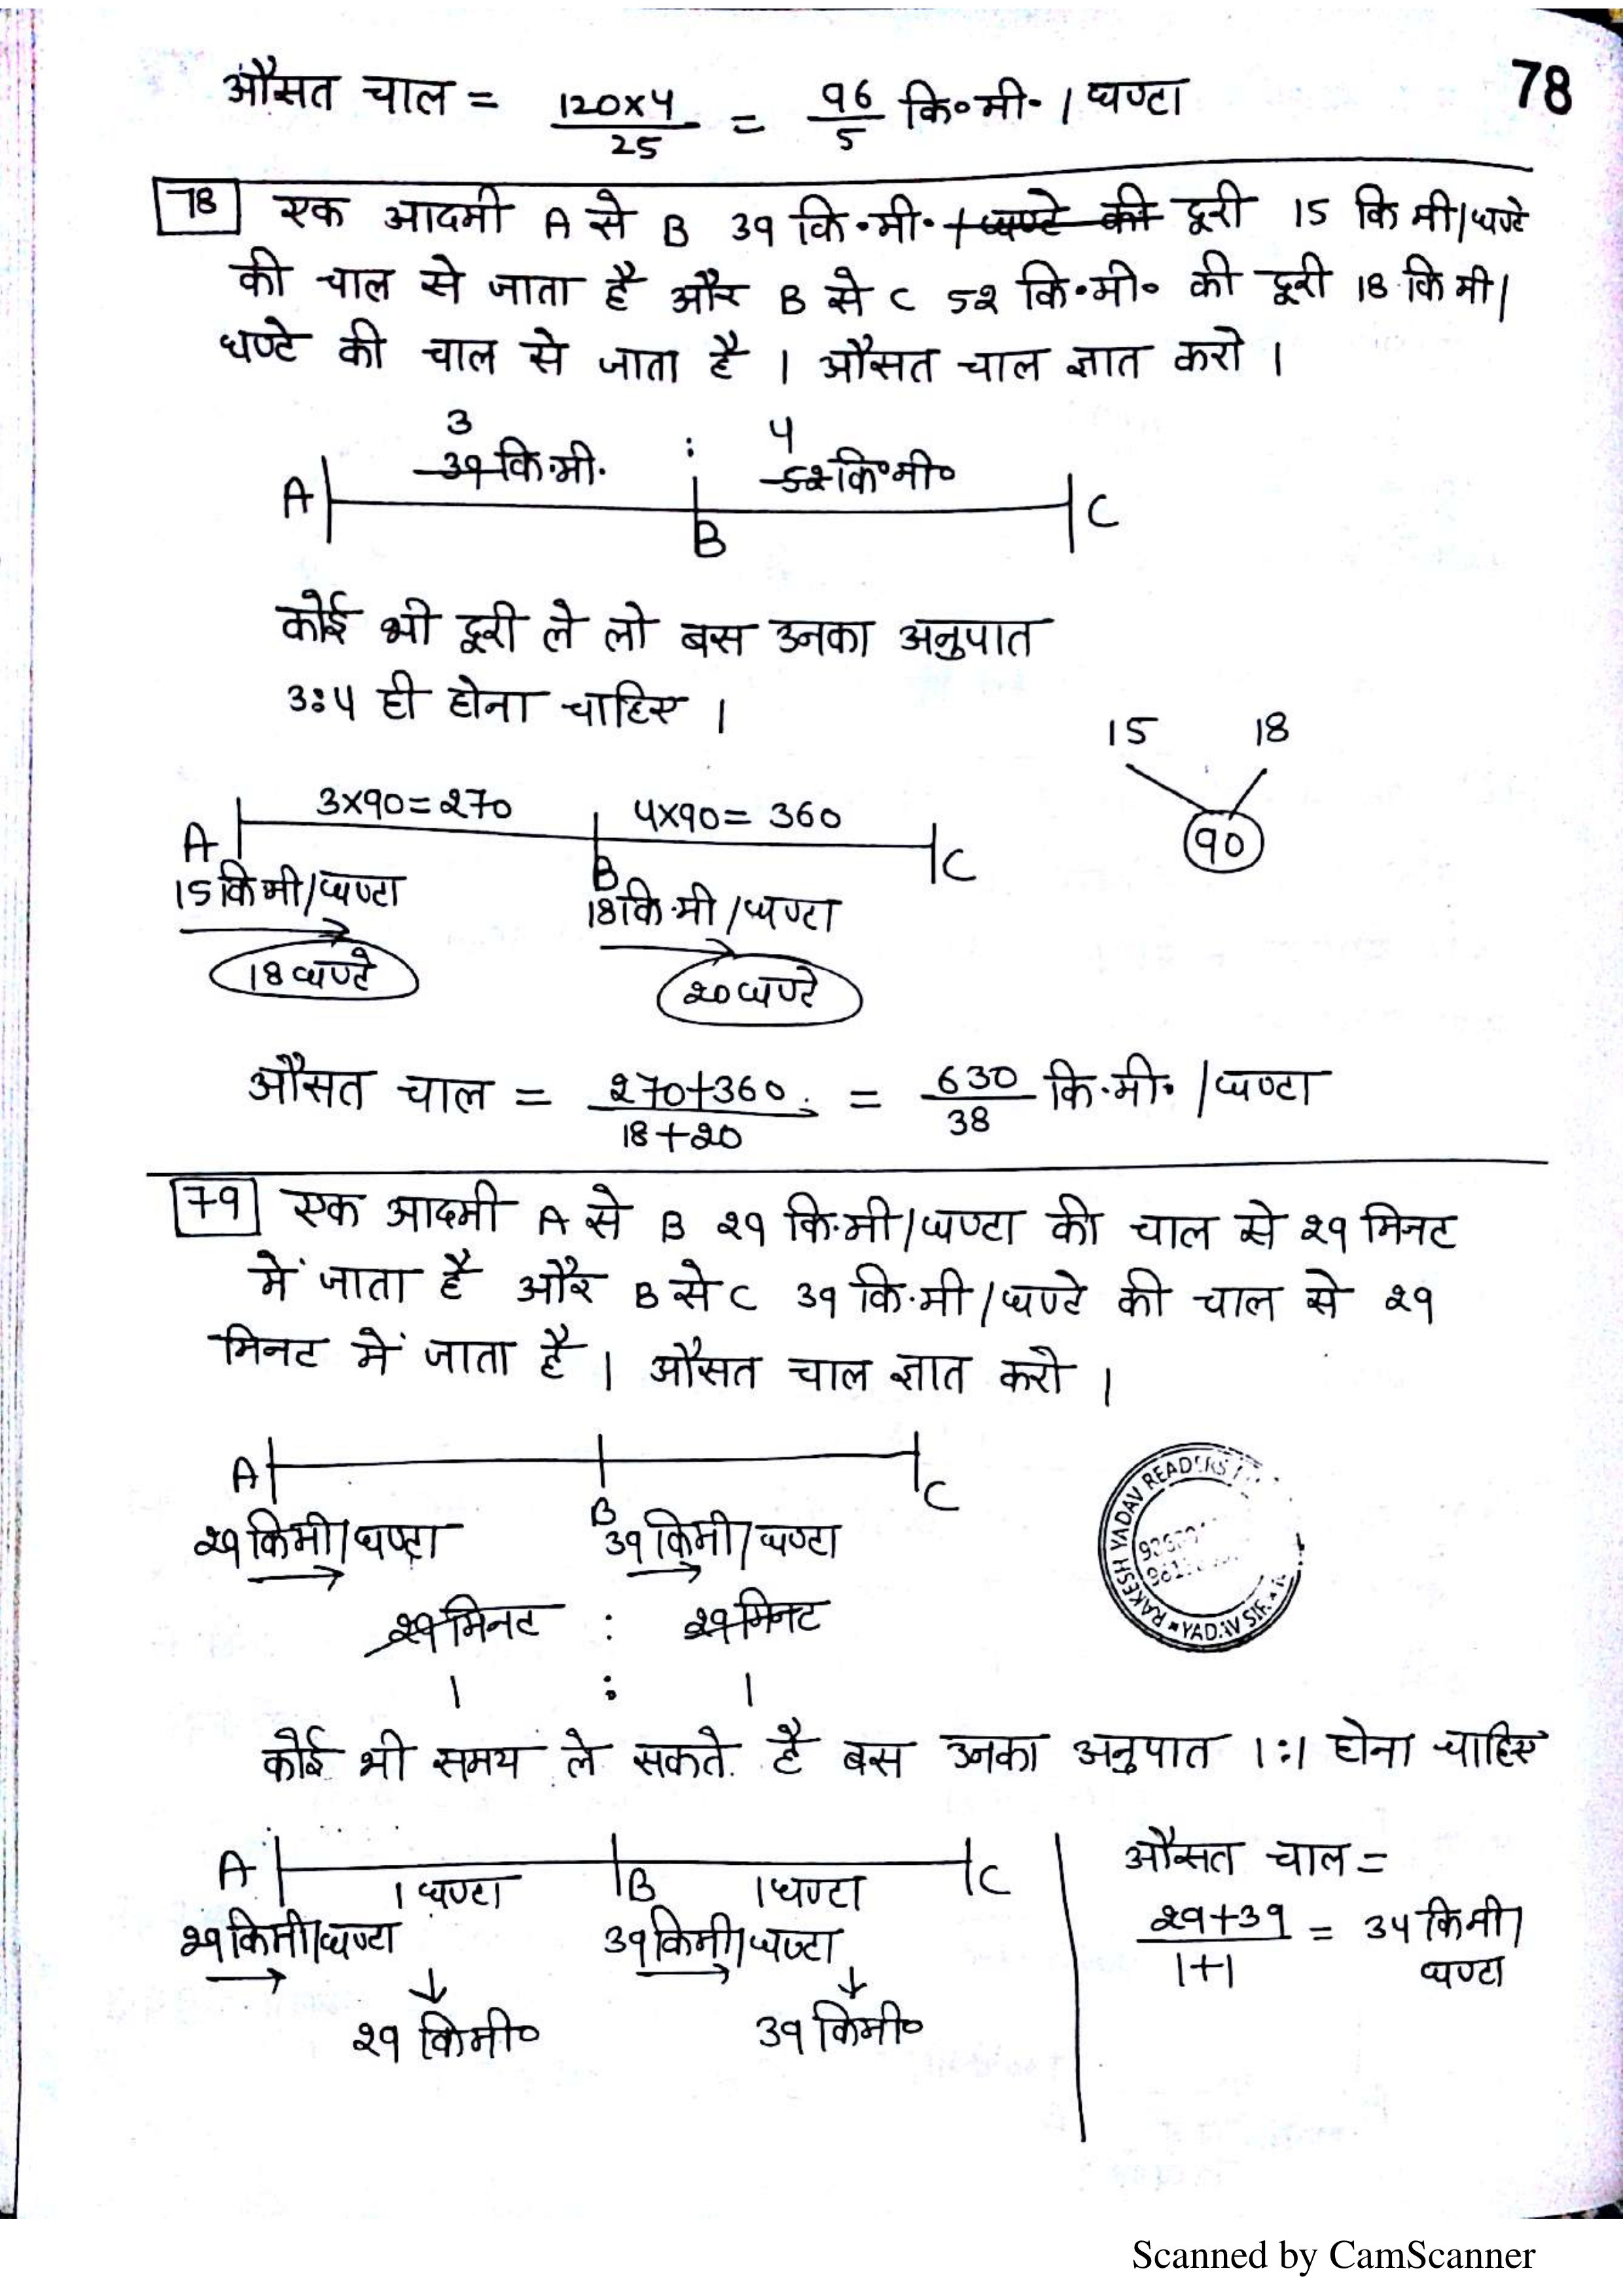 औसत चाल = 120×4/25 = 96/5 कि॰मी॰ / घण्टा
78
78 एक आदमी A से B 39 कि॰मी॰ / घण्टे की दूरी 15 कि मी/घण्टे
की चाल से जाता है और B से C 52 कि॰मी॰ की दूरी 18 कि मी/
घण्टे की चाल से जाता है । औसत चाल ज्ञात करो ।
3 : 4
39 कि.मी. 52 कि॰मी॰
A B C
कोई भी दूरी ले लो बस उनका अनुपात
3:4 ही होना चाहिए ।
15 18
90
3×90=270 4×90= 360
A B C
15 कि मी/घण्टा 18 कि.मी /घण्टा
18 घण्टे 20 घण्टे
औसत चाल = 270+360/18+20 = 630/38 कि.मी. /घण्टा
79 एक आदमी A से B 29 कि.मी/घण्टा की चाल से 29 मिनट
में जाता है और B से C 39 कि.मी/घण्टे की चाल से 29
मिनट में जाता है । औसत चाल ज्ञात करो ।
A B C
29 किमी/घण्टा 39 किमी/घण्टा
29 मिनट : 29 मिनट
1 : 1
RAKESH YADAV READERS
कोई भी समय ले सकते है बस उनका अनुपात 1:1 होना चाहिए
A 1 घण्टा B 1 घण्टा C
29 किमी/घण्टा 39 किमी/घण्टा
29 किमी॰ 39 किमी॰
औसत चाल =
29+39/1+1 = 34 किमी/
घण्टा
Scanned by CamScanner